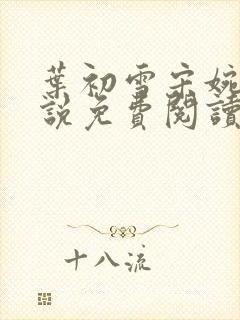 葉初雪宋婉
說免費閱讀
十八流